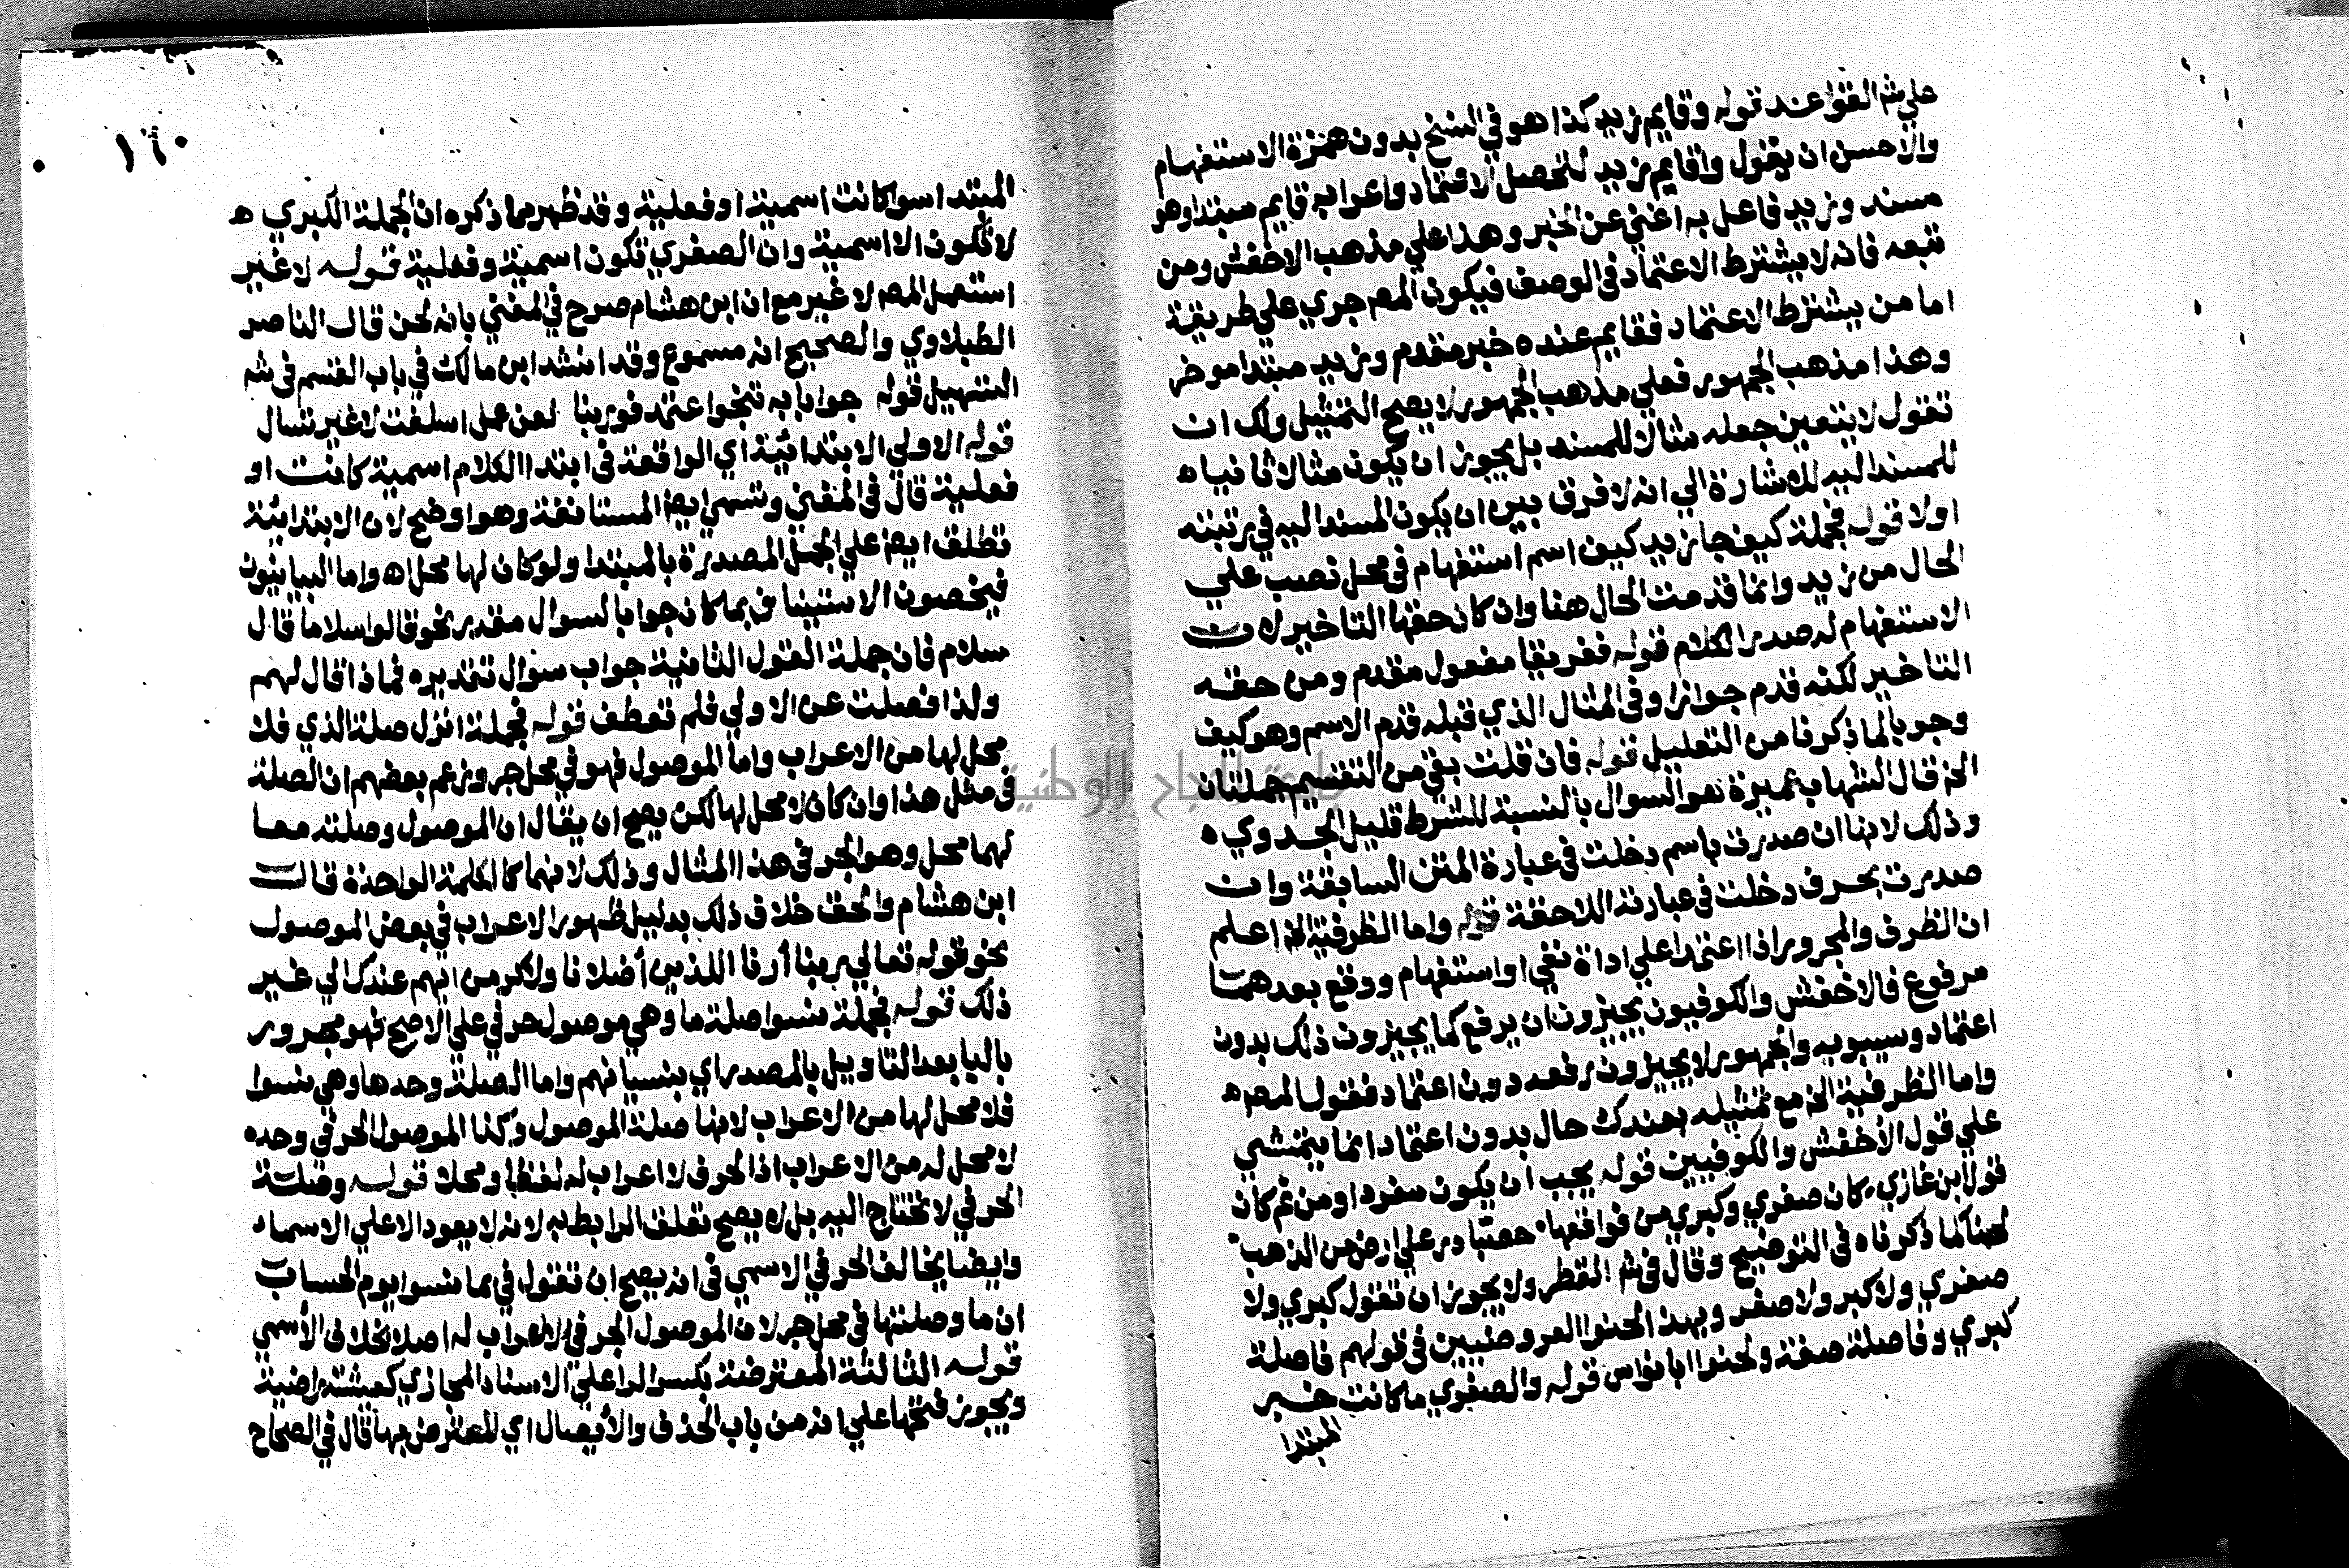 علي شر القواعد قوله وقايم زيد كذا هو في النسخ بدون همزة الاستفهام
والاحسن ان يقول واقايم زيد لتحصل الاعتماد واعرابه قايم مبتدا وهو
مسند وزيد فاعل به اغني عن الخبر وهذا علي مذهب الاخفش ومن
تبعه فانه لا يشترط الاعتماد في الوصف فيكون المصـ جري علي طريقة
اما من يشترط الاعتماد فقايم عنده خبر مقدم وزيد مبتدا موخر
وهذا مذهب الجمهور فعلي مذهب الجمهور لا يصح التمثيل ولك ان
تقول لا يتعين جعله مثالا للمسند بل يجوز ان يكون مثالا ثانيا ه
للمسند اليه للاشارة الي انه لا فرق بين ان يكون المسند اليه في رتبته
اولا قوله فجملة كيف جا زيد كيف اسم استفهام في محل نصب علي
الحال من زيد وانما قدمت الحال هنا وان كان حقها التاخير لان
الاستفهام له صدر الكلام قوله ففريقا مفعول مقدم ومن حقه
التاخير لكنه قدم جوازا وفي المثال الذي قبله قدم الاسم وهو كيف
وجوبا لما ذكرنا من التعليل قوله فان قلت بقي من التقسيم جملتان
الخ قال الشهاب عميرة نعو السوال بالنسبة للشرط قليل الجدوي ه
وذلك لانها ان صدرت باسم دخلت في عبارة المتن السابقة وان
صدرت بحرف دخلت في عبارته اللاحقة قوله واما الظرفية الخ اعلم
ان الظرف والمجرور اذا اعتمدا علي اداة نفي او استفهام ووقع بعدهما
مرفوع فالاخفش والكوفيون يجيزون ان يرفع كما يجيزون ذلك بدون
اعتماد وسيبويه والجمهور لا يجيزون رفعه دون اعتماد فقول المصـ ه
واما الظرفية الخ مع تمثيله بعندك حال بدون اعتماد انما يتمشي
علي قول الاخفش والكوفيين قوله يجب ان يكون مفردا ومن ثم كان
قول ابن غازي كان صغري وكبري من فواقعها حصبا در علي ارض من الذهب
لحنا كما ذكرناه في التوضيح وقال في شر القطر ولا يجوز ان تقول كبري ولا
صغري ولا كبر ولا صغر وبهذا لحنوا العروضيين في قولهم فاصلة
كبري وفاصلة صغة ولحنوا ابا نواس قوله والصغري ما كانت خبر
المبتدا
١٦٠
المبتدا سوا كانت اسمية او فعلية وقد ظهر مما ذكره ان الجملة الكبري ه
لا تكون الا اسمية وان الصغري تكون اسمية وفعلية قوله لا غير
استعمل المصـ لا غير مع ان ابن هشام صرح في المغني بانه لحن قال الناصر
الطبلاوي والصحيح انه مسموع وقد انشد ابن مالك في باب القسم في شر
التسهيل قوله جوابا به تنجوا عتمد فوربنا لعن عمل اسلفت لا غير تسال
قوله الاولي الابتدائية اي الواقعة في ابتدا الكلام اسمية كانت او
فعلية قال في المغني وتسمي ايضا المستانفة وهو اوضح لان الابتدائية
تطلق ايضـ علي الجمل المصدرة بالمبتدا ولو كان لها محل اه واما البيانيون
فيخصون الاستيناف بما كان جوابا لسوال مقدر نحو قالوا سلاما قال
سلام فان جملة القول الثانية جواب سؤال تقديره فماذا قال لهم
ولذا فصلت عن الاولي فلم تعطف قوله فجملة انزل صلة الذي فلا
محل لها من الاعراب واما الموصول فهو في محل جر وزعم بعضهم ان الصلة
في مثل هذا وان كان لا محل لها لكن يصح ان يقال ان الموصول وصلته معا
لهما محل وهو الجر في هذا المثال وذلك لانهما كالكلمة الواحدة قال
ابن هشام والحق خلاف ذلك بدليل ظهور الاعراب في بعض الموصول
نحو قوله تعالي ربنا أرنا اللذين أضلانا ولاكرمن ايهم عندك الي غير
ذلك قوله فجملة نسوا صلة ما وهي موصول حرفي علي الاصح فهو مجرور
باليا بعد التاويل بالمصدر اي بنسيانهم واما الصلة وحدها وهي نسوا
فلا محل لها من الاعراب لانها صلة الموصول وكذا الموصول الحرفي وحده
لا محل له من الاعراب اذ الحرف لا اعراب له لفظا ومحلا قوله وصلة
الحرفي لا تحتاج اليه بل لا يصح تعلق الرابط به لانه لا يعود الا علي الاسماء
وايضا يخالف الحرفي الاسمي في انه يصح ان تقول في بما نسوا يوم الحساب
ان ما وصلتها في محل جر لان الموصول الحرفي لا اعراب له اصلا بخلاف الاسمي
قوله الثالثة المعترضة بكسر الرا علي الاسناد المجازي كعيشة راضية
ويجوز فتحها علي انه من باب الحذف والايصال اي للمعترض بها قال في الصحاح
جامعة النجاح الوطنية